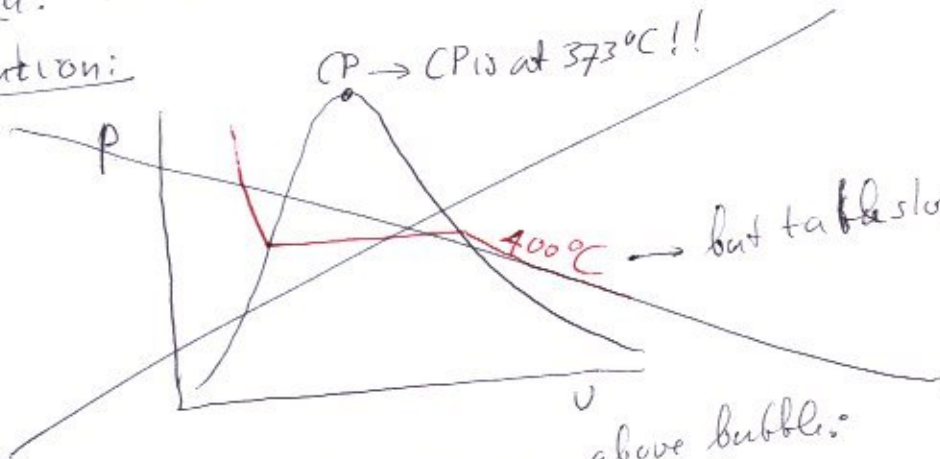 ution:
CP → CP is at 373°C!!
P
400°C → but table
υ
above bubble: